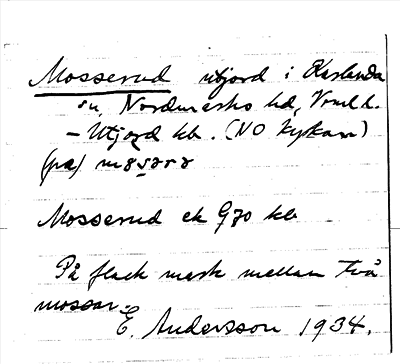 Mosserud utjord i Karlanda
sn, Nordmarks hd, Vrml d.
- Utjord kb. (NO kyrkan)
(på)
Mosserud ek 970 kb
På flack mark mellan två
mossar.
E. Andersson 1934.